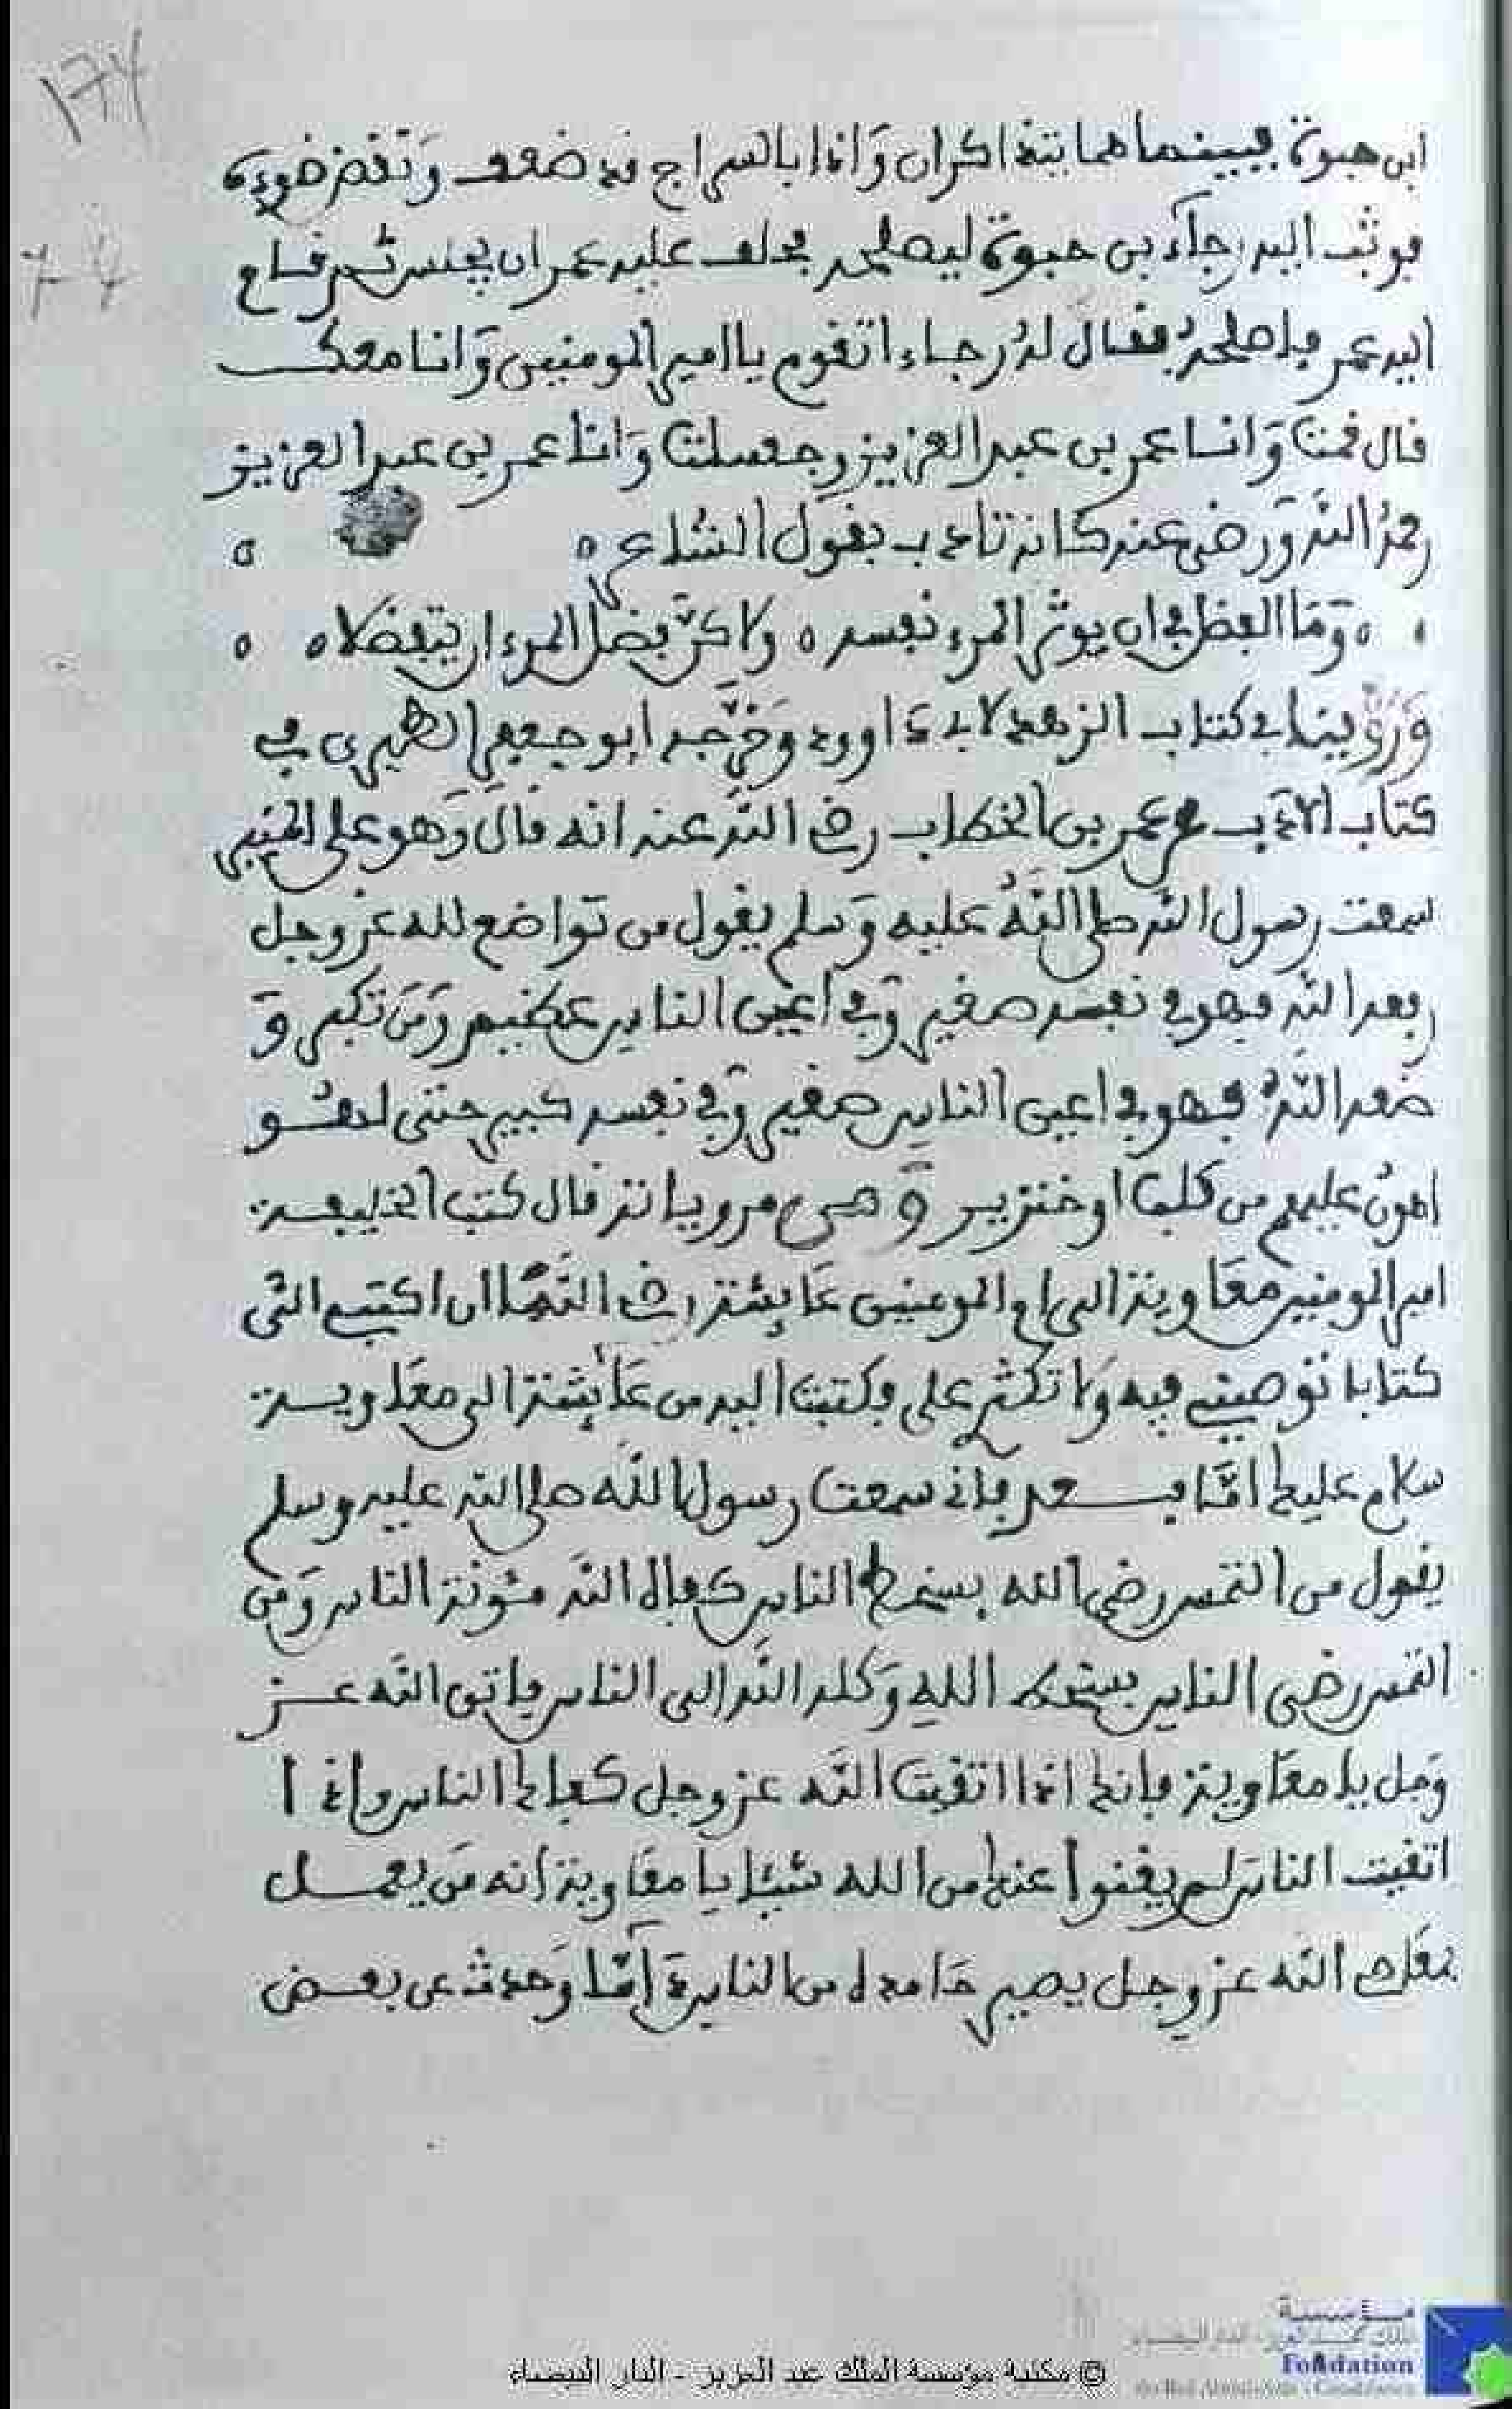 ١٦٧
ابن حيوة فبينما هما يتذاكران وَاذا بالسراج قد ضعف وَنقص ضوءه
فوثب اليه رجاء بن حيوة ليصلحه فحلف عليه عمر ان يجلس ثم قام
اليه عمر فاصلحه فقال له رجاء اتقوم يا امير المومنين وَانا معك
قال قمت وَانا عمر بن عبد العزيز وجلست وَانا عمر بن عبد العزيز
رحمه الله وَرضي عنه كانه تادب بقول الشاعر
وَمَا الفضل في ان يوثر المرء نفسه ه ولاكنّ فضل المرء ان يتفضلا ه
وَرُوّينا في كتاب الزهد لابي داوود وَخرّجه ابو جعفر الطبري في
كتاب الادب عن عمر بن الخطاب رضي الله عنه انه قال وَهو على المنبر
سمعت رسول الله صلى اللهُ عليه وَسلم يقول من تواضع لله عز وجل
رفعه الله فهو في نفسه صغير وَفي اعين الناس عظيم وَمَن تكبر وَ
ضعه اللهُ فهو في اعين الناس صغير وَفي نفسه كبير حتى لهو
اهونُ عليهم من كلب او خنزير وَمن مروياته قال كتب الخليفة
امير المومنين معَاوية الى ام المومنين عَايشة رضي الله عنها ان اكتبي الي
كتابا توصيني فيه وَلا تكثر علي فكتبت اليه من عَائشة الى معَاوية
سلام عليك امَّا بعد فاني سمعت رسول الله صلى الله عليه وسلم
يقول من التمس رضى الله بسخط الناس كفاه الله مئونة الناس وَمن
التمس رضى الناس بسخط اللهِ وَكله الله الى الناس فاتق الله عز
وَجل يا معَاوية فانك اذا اتقيت الله عز وجل كفاك الناس واذا
اتقيت الناس لم يغنوا عنك من الله شيئا يا معَاوية انه مَن يعمل
بمعَاصي الله عز وجل يصير حَامده من الناس ذامّا وَحدث عن بعض
© مكتبة مؤسسة الملك عبد العزيز - الدار البيضاء
مؤسسة
Fondation